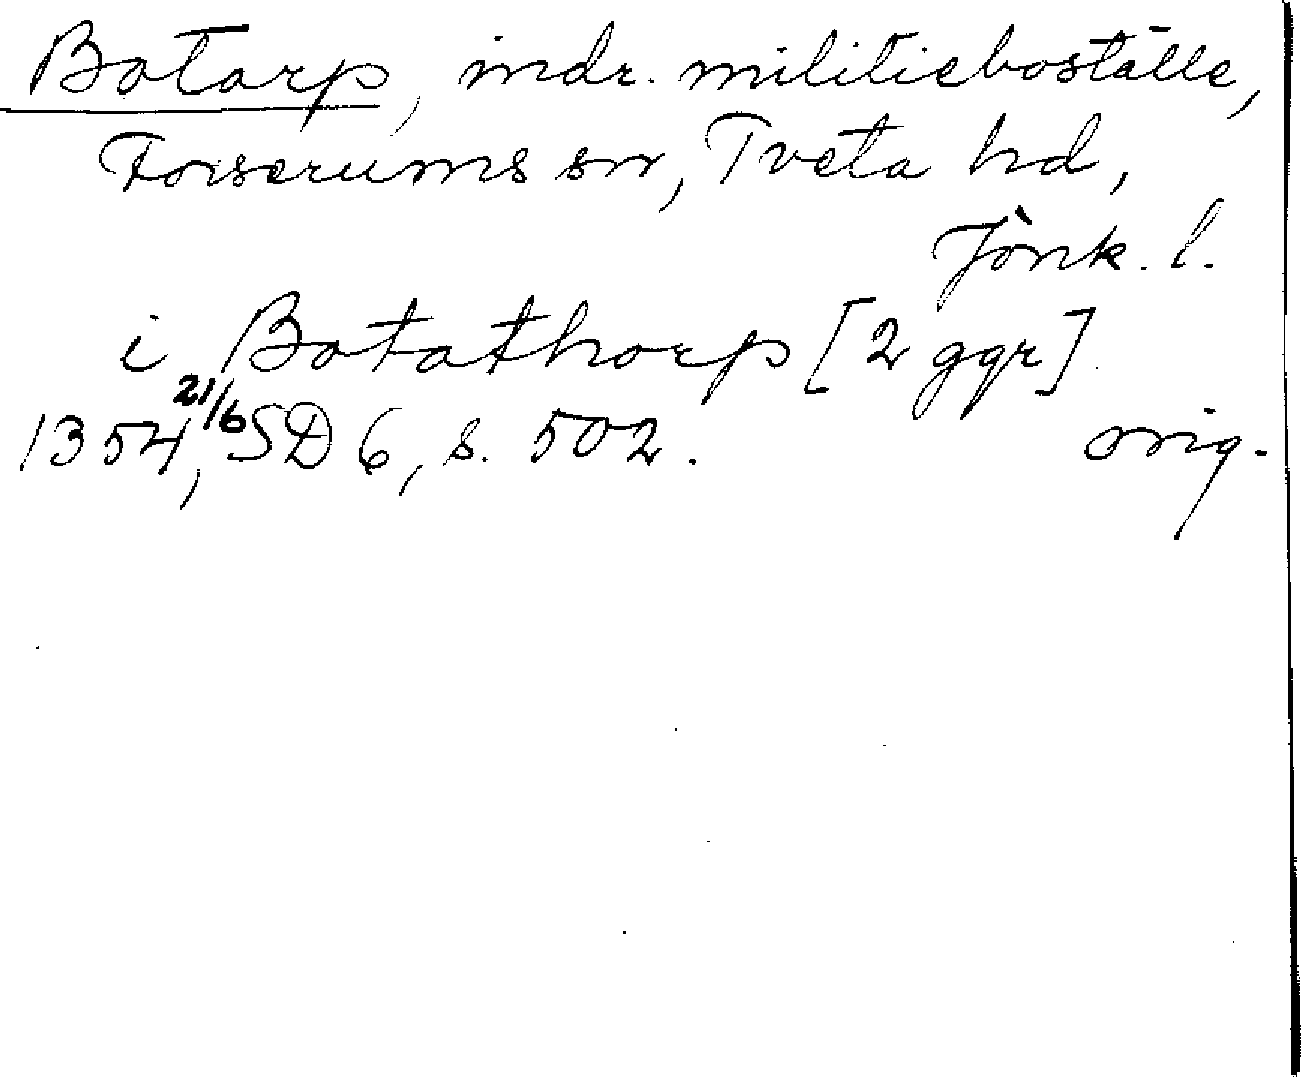 Botarp, indr. militieboställe,
Forserums sn, Tveta hd,
Jönk. l.
i Botathorp [2 ggr]
1354 21/6, SD 6, s. 502. orig.